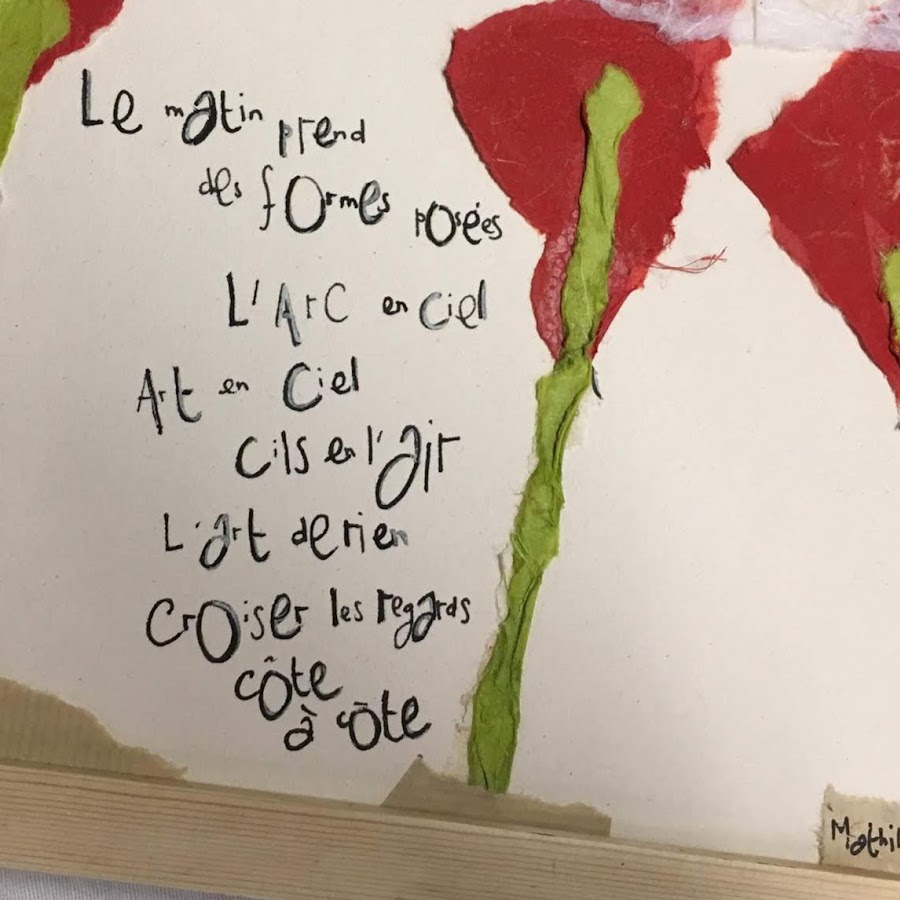 Le matin prend
des formes posées
L'Arc en ciel
Art en Ciel
Cils en l'air
L'art de rien
Croiser les regards
côte
à côte